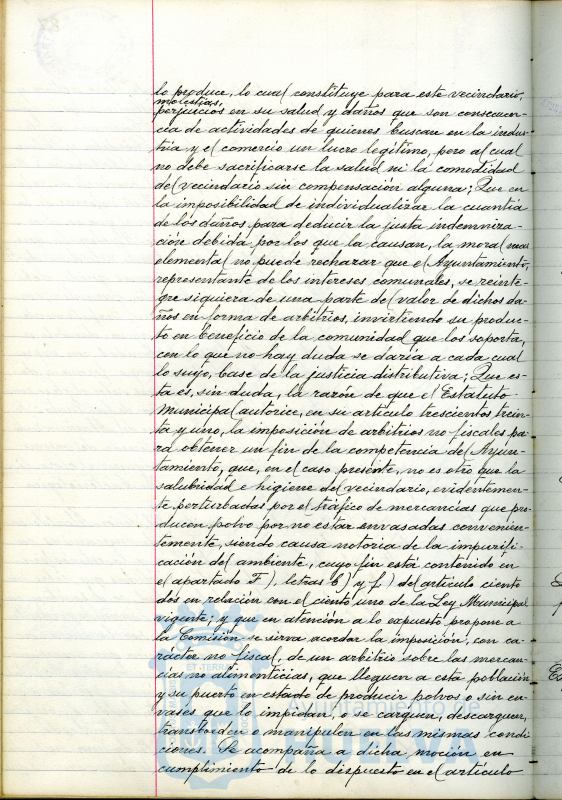 lo produce, lo cual constituye para este vecindario,
molestias,
perjuicios en su salud y daños que son consecuen-
cia de actividades de quienes buscan en la indus-
tria y el comercio un lucro legítimo, pero al cual
no debe sacrificarse la salud ni la comodidad
del vecindario sin compensación alguna; Que en
la imposibilidad de individualizar la cuantía
de los daños para deducir la justa indemniza-
ción debida por los que la causan, la moral mas
elemental no puede rechazar que el Ayuntamiento,
representante de los intereses comunales, se reinte-
gre siquiera de una parte del valor de dichos da-
ños en forma de arbitrios, invirtiendo su produc-
to en beneficio de la comunidad que los soporta,
con lo que no hay duda se daría a cada cual
lo suyo, base de la justicia distributiva; Que es-
ta es, sin duda, la razón de que el Estatuto
Municipal autorice, en su artículo trescientos trein-
ta y uno, la imposición de arbitrios no fiscales pa-
ra obtener un fin de la competencia del Ayun-
tamiento, que, en el caso presente, no es otro que la
salubridad e higiene del vecindario, evidentemen-
te perturbadas por el tráfico de mercancías que pro-
ducen polvo por no estar envasadas convenien-
temente, siendo causa notoria de la impurifi-
cación del ambiente, cuyo fin está contenido en
el apartado F), letras b) y f) del artículo ciento
dos en relación con el ciento uno de la Ley Municipal
vigente; y que en atención a lo expuesto propone a
la Comisión se sirva acordar la imposición, con ca-
rácter no fiscal, de un arbitrio sobre las mercan-
cías no alimenticias, que lleguen a esta población
y su puerto en estado de producir polvos o sin en-
vases que lo impidan, o se carguen, descarguen,
transborden o manipulen en las mismas condi-
ciones. Se acompaña a dicha moción en
cumplimiento de lo dispuesto en el artículo
ET TERRA
Ayuntamiento de